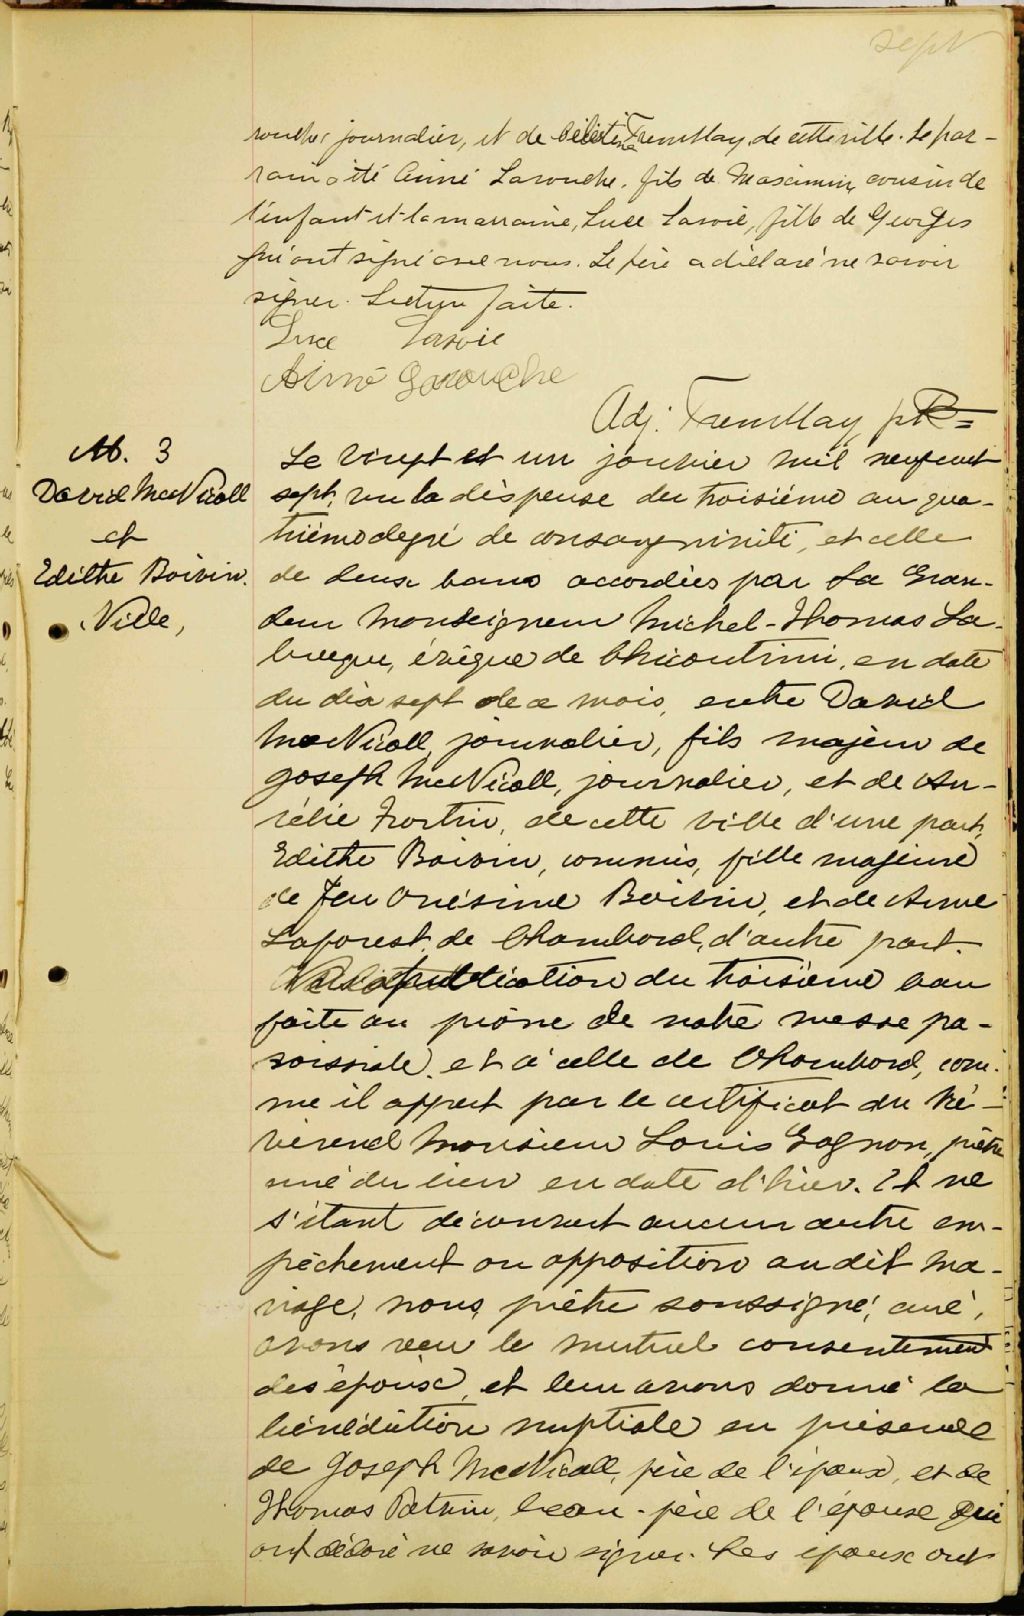 sept
rouche journalier, et de Célestine Tremblay, de cette ville. Le par-
rain a été Aimé Larouche, fils de Maximin, cousin de
l'enfant et la marraine, Luce Lavoie, fille de Georges
qui ont signé avec nous. Le père a déclaré ne savoir
signer. Lecture faite.
Luce Lavoie
Aimé Larouche
Adj. Tremblay ptre
M. 3
David McNicoll
et
Edithe Boivin.
Ville,
Le vingt et un janvier mil neuf cent
sept, vu la dispense du troisième au qua-
trième degré de consanguinité, et celle
de deux bans accordées par Sa Gran-
deur Monseigneur Michel-Thomas La-
brecque, évêque de Chicoutimi, en date
du dix sept de ce mois, entre David
McNicoll, journalier, fils majeur de
Joseph McNicoll, journalier, et de Au-
rélie Fortin, de cette ville d'une part,
Edithe Boivin, commis, fille majeure
de feu Onésime Boivin, et de Anne
Laforest, de Chambord, d'autre part.
Vu la publication du troisième ban
faite au prône de notre messe pa-
roissiale, et à celle de Chambord, com-
me il appert par le certificat du Ré-
vérend Monsieur Louis Gagnon, prêtre
curé du lieu en date d'hier. Et ne
s'étant découvert aucun autre em-
pêchement ou opposition au dit ma-
riage, nous, prêtre soussigné, curé,
avons reçu le mutuel consentement
des époux, et leur avons donné la
bénédiction nuptiale en présence
de Joseph McNicoll, père de l'époux, et de
Thomas Potvin, beau-père de l'épouse qui
ont déclaré ne savoir signer. Les époux ont